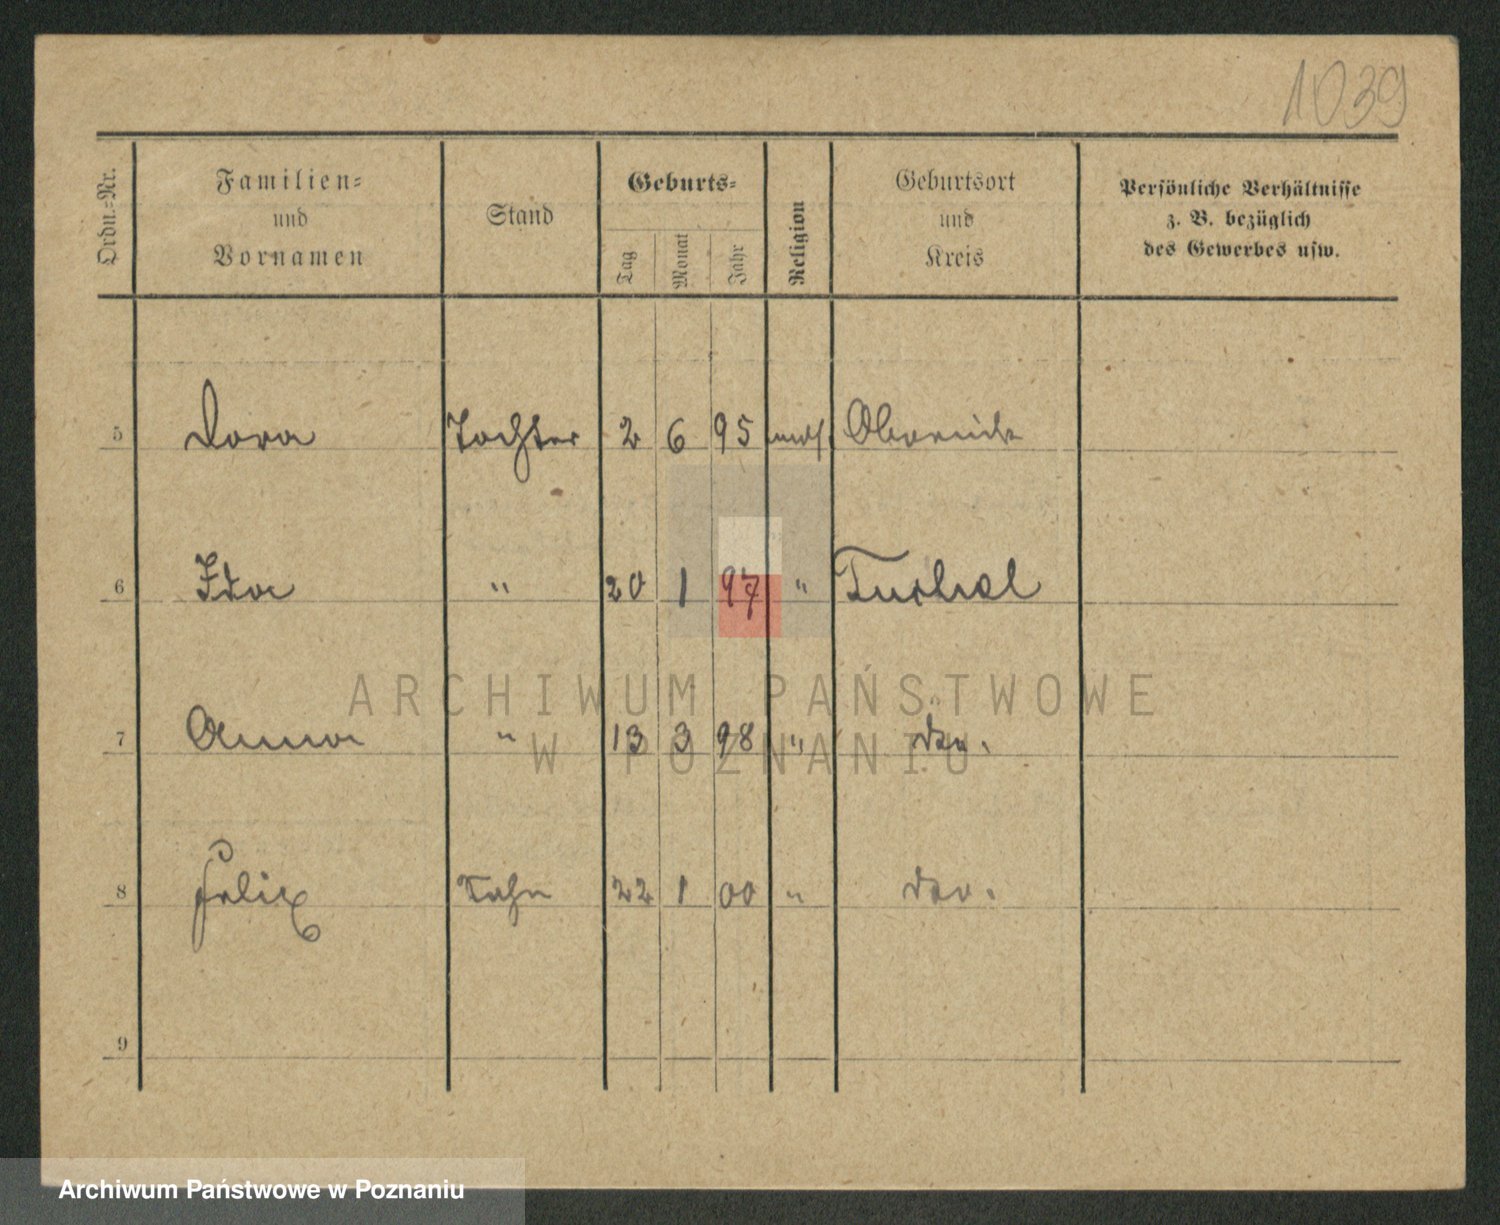 1039
Ordn.-Nr.
Familien-
und
Vornamen
Stand
Geburts-
Tag
Monat
Jahr
Religion
Geburtsort
und
Kreis
Persönliche Verhältnisse
z. B. bezüglich
des Gewerbes usw.
5 Dora Tochter 2 6 95
6 Ida " 20 1 97 " Tuchel
7 Anna " 13 3 98 " dto.
8 Felix Sohn 22 1 00 " dto.
9
ARCHIWUM PAŃSTWOWE
W POZNANIU
Archiwum Państwowe w Poznaniu